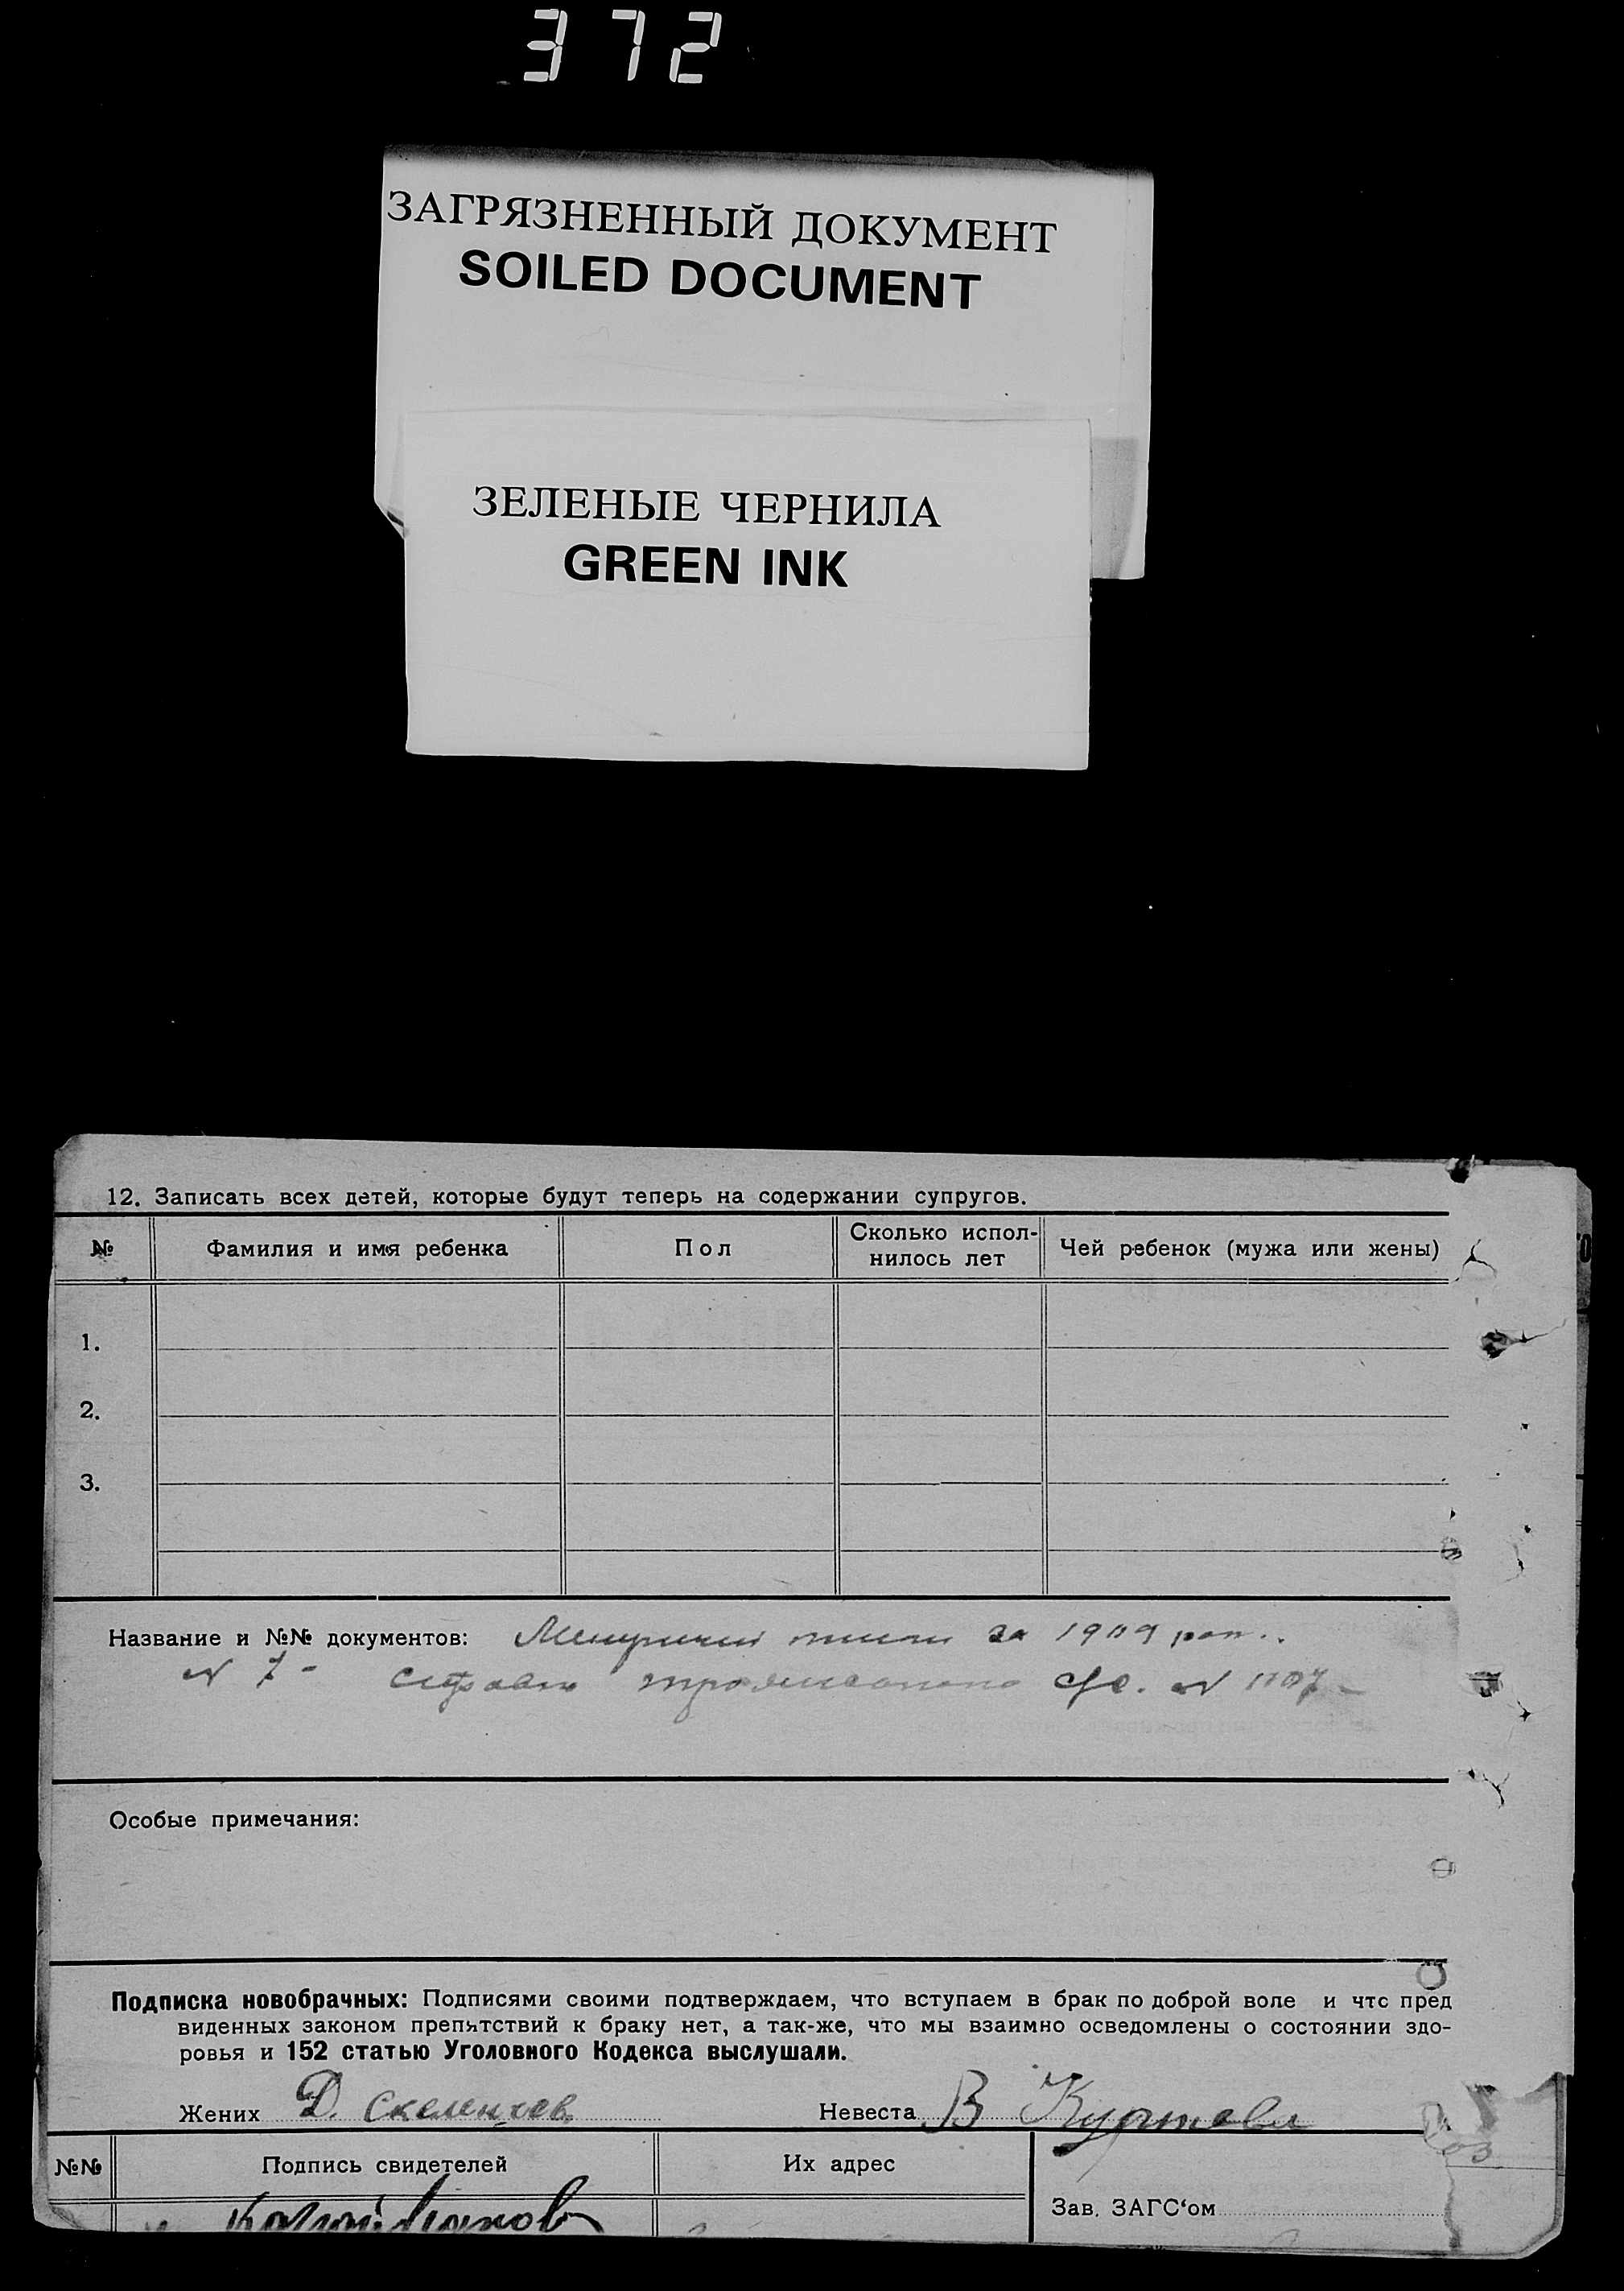 372
ЗАГРЯЗНЕННЫЙ ДОКУМЕНТ
SOILED DOCUMENT
ЗЕЛЕНЫЕ ЧЕРНИЛА
GREEN INK
12. Записать всех детей, которые будут теперь на содержании супругов.
№ Фамилия и имя ребенка Пол Сколько испол-
нилось лет Чей ребенок (мужа или жены)
1.
2.
3.
Название и №№ документов: за 1909
N 7 - N 1107 -
Особые примечания:
Подписка новобрачных: Подписями своими подтверждаем, что вступаем в брак по доброй воле и что пред
виденных законом препятствий к браку нет, а так-же, что мы взаимно осведомлены о состоянии здо-
ровья и 152 статью Уголовного Кодекса выслушали.
Жених Д. Скеленчев Невеста В Куртева
№№ Подпись свидетелей Их адрес
Зав. ЗАГС‘ом